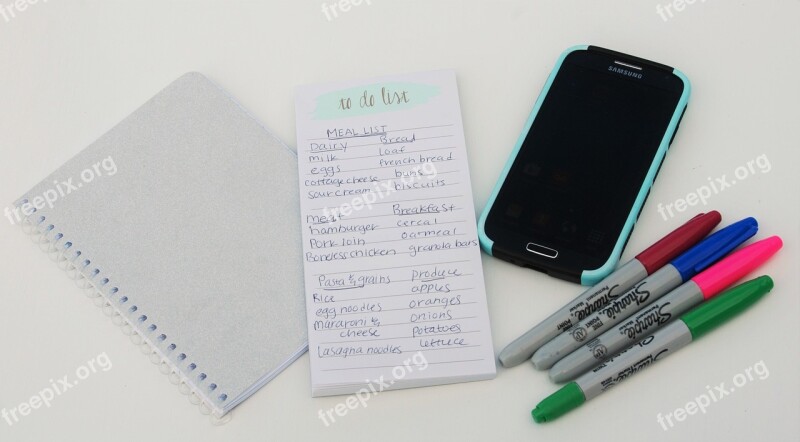 to do list
MEAL LIST
Dairy Bread
milk Loaf
eggs french bread
cottage cheese buns
sour cream biscuits
meat Breakfast
hamburger cereal
Pork loin oatmeal
Boneless chicken granola bars
Pasta & grains produce
Rice apples
egg noodles oranges
macaroni & onions
cheese potatoes
lasagna noodles lettuce
SAMSUNG
Sharpie
Sharpie
Sharpie
Sharpie
freepix.org
freepix.org
freepix.org
freepix.org
freepix.org
freepix.org
freepix.org
freepix.org
freepix.org
freepix.org
freepix.org
freepix.org